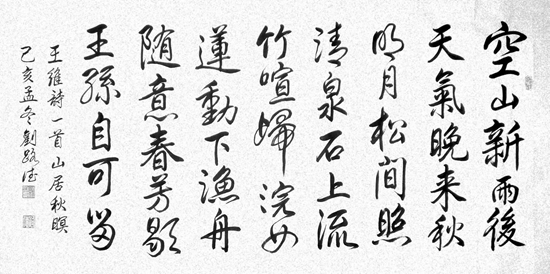 空山新雨後
天氣晚来秋
明月松間照
清泉石上流
竹喧歸浣女
蓮動下漁舟
随意春芳歇
王孫自可留
王維詩一首山居秋暝
己亥孟冬劉